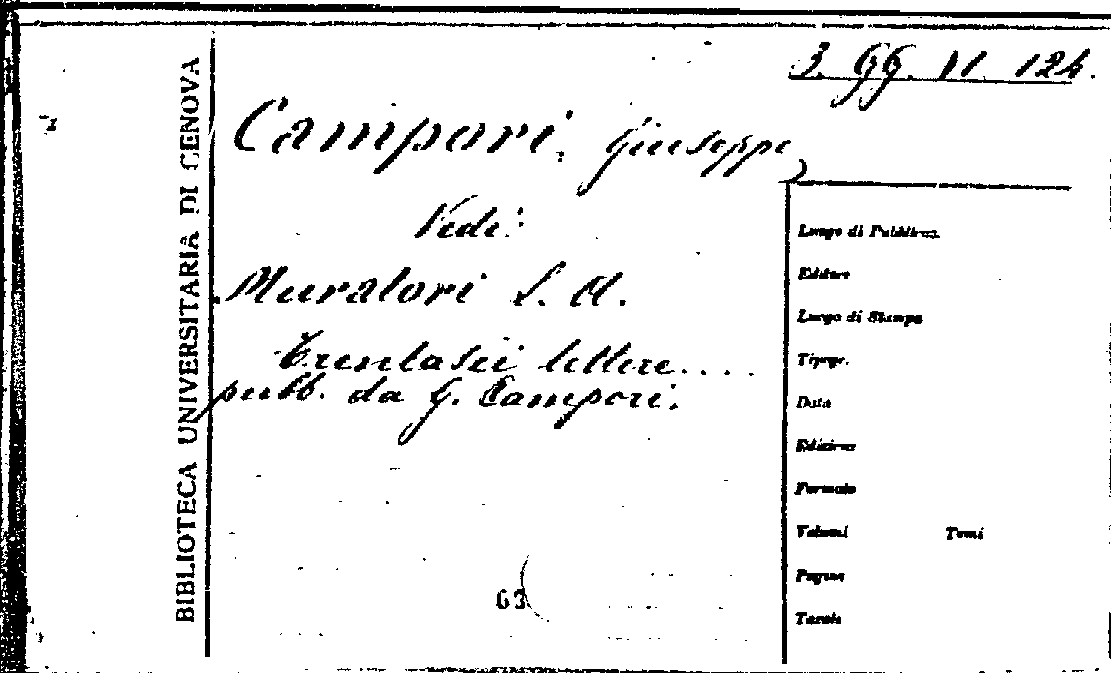 3. GG. VI. 124.
Campori, Giuseppe
Vedi:
Muratori L. A.
Trentasei lettere....
pubb. da G. Campori.
BIBLIOTECA UNIVERSITARIA DI GENOVA
Luogo di Pubblicaz.
Editore
Luogo di Stampa
Tipogr.
Data
Edizione
Formato
Volumi Tomi
Pagine
Tavole
63